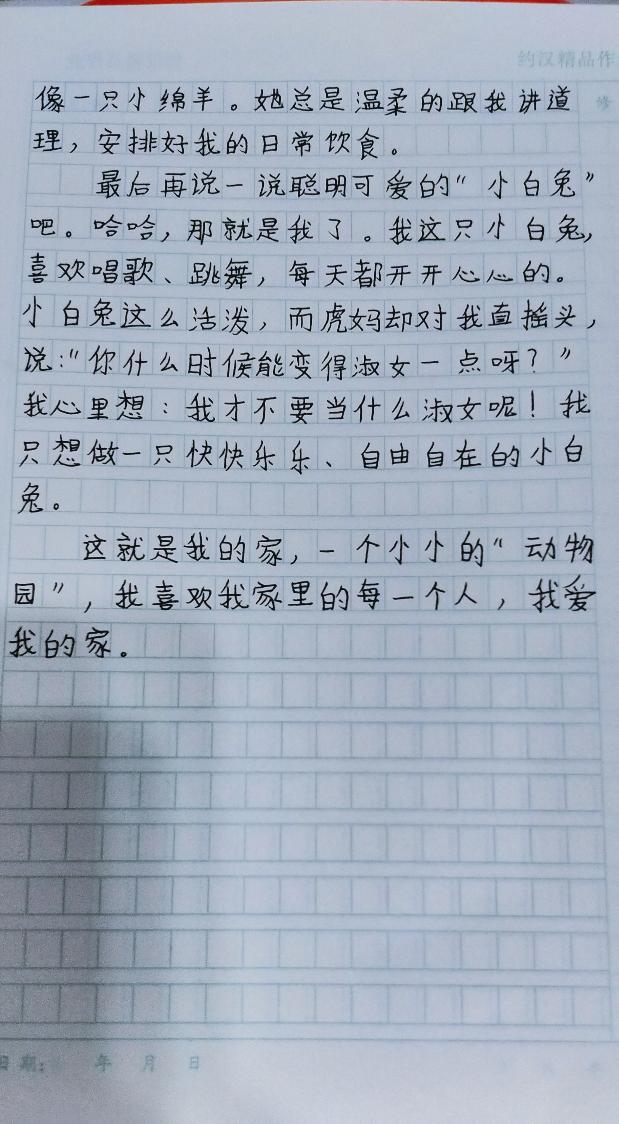 约汉精品作
修
像一只小绵羊。她总是温柔的跟我讲道
理，安排好我的日常饮食。
最后再说一说聪明可爱的“小白兔”
吧。哈哈，那就是我了。我这只小白兔，
喜欢唱歌、跳舞，每天都开开心心的。
小白兔这么活泼，而虎妈却对我直摇头，
说：“你什么时候能变得淑女一点呀？”
我心里想：我才不要当什么淑女呢！我
只想做一只快快乐乐、自由自在的小白
兔。
这就是我的家，一个小小的“动物
园”，我喜欢我家里的每一个人，我爱
我的家。
日期： 年 月 日